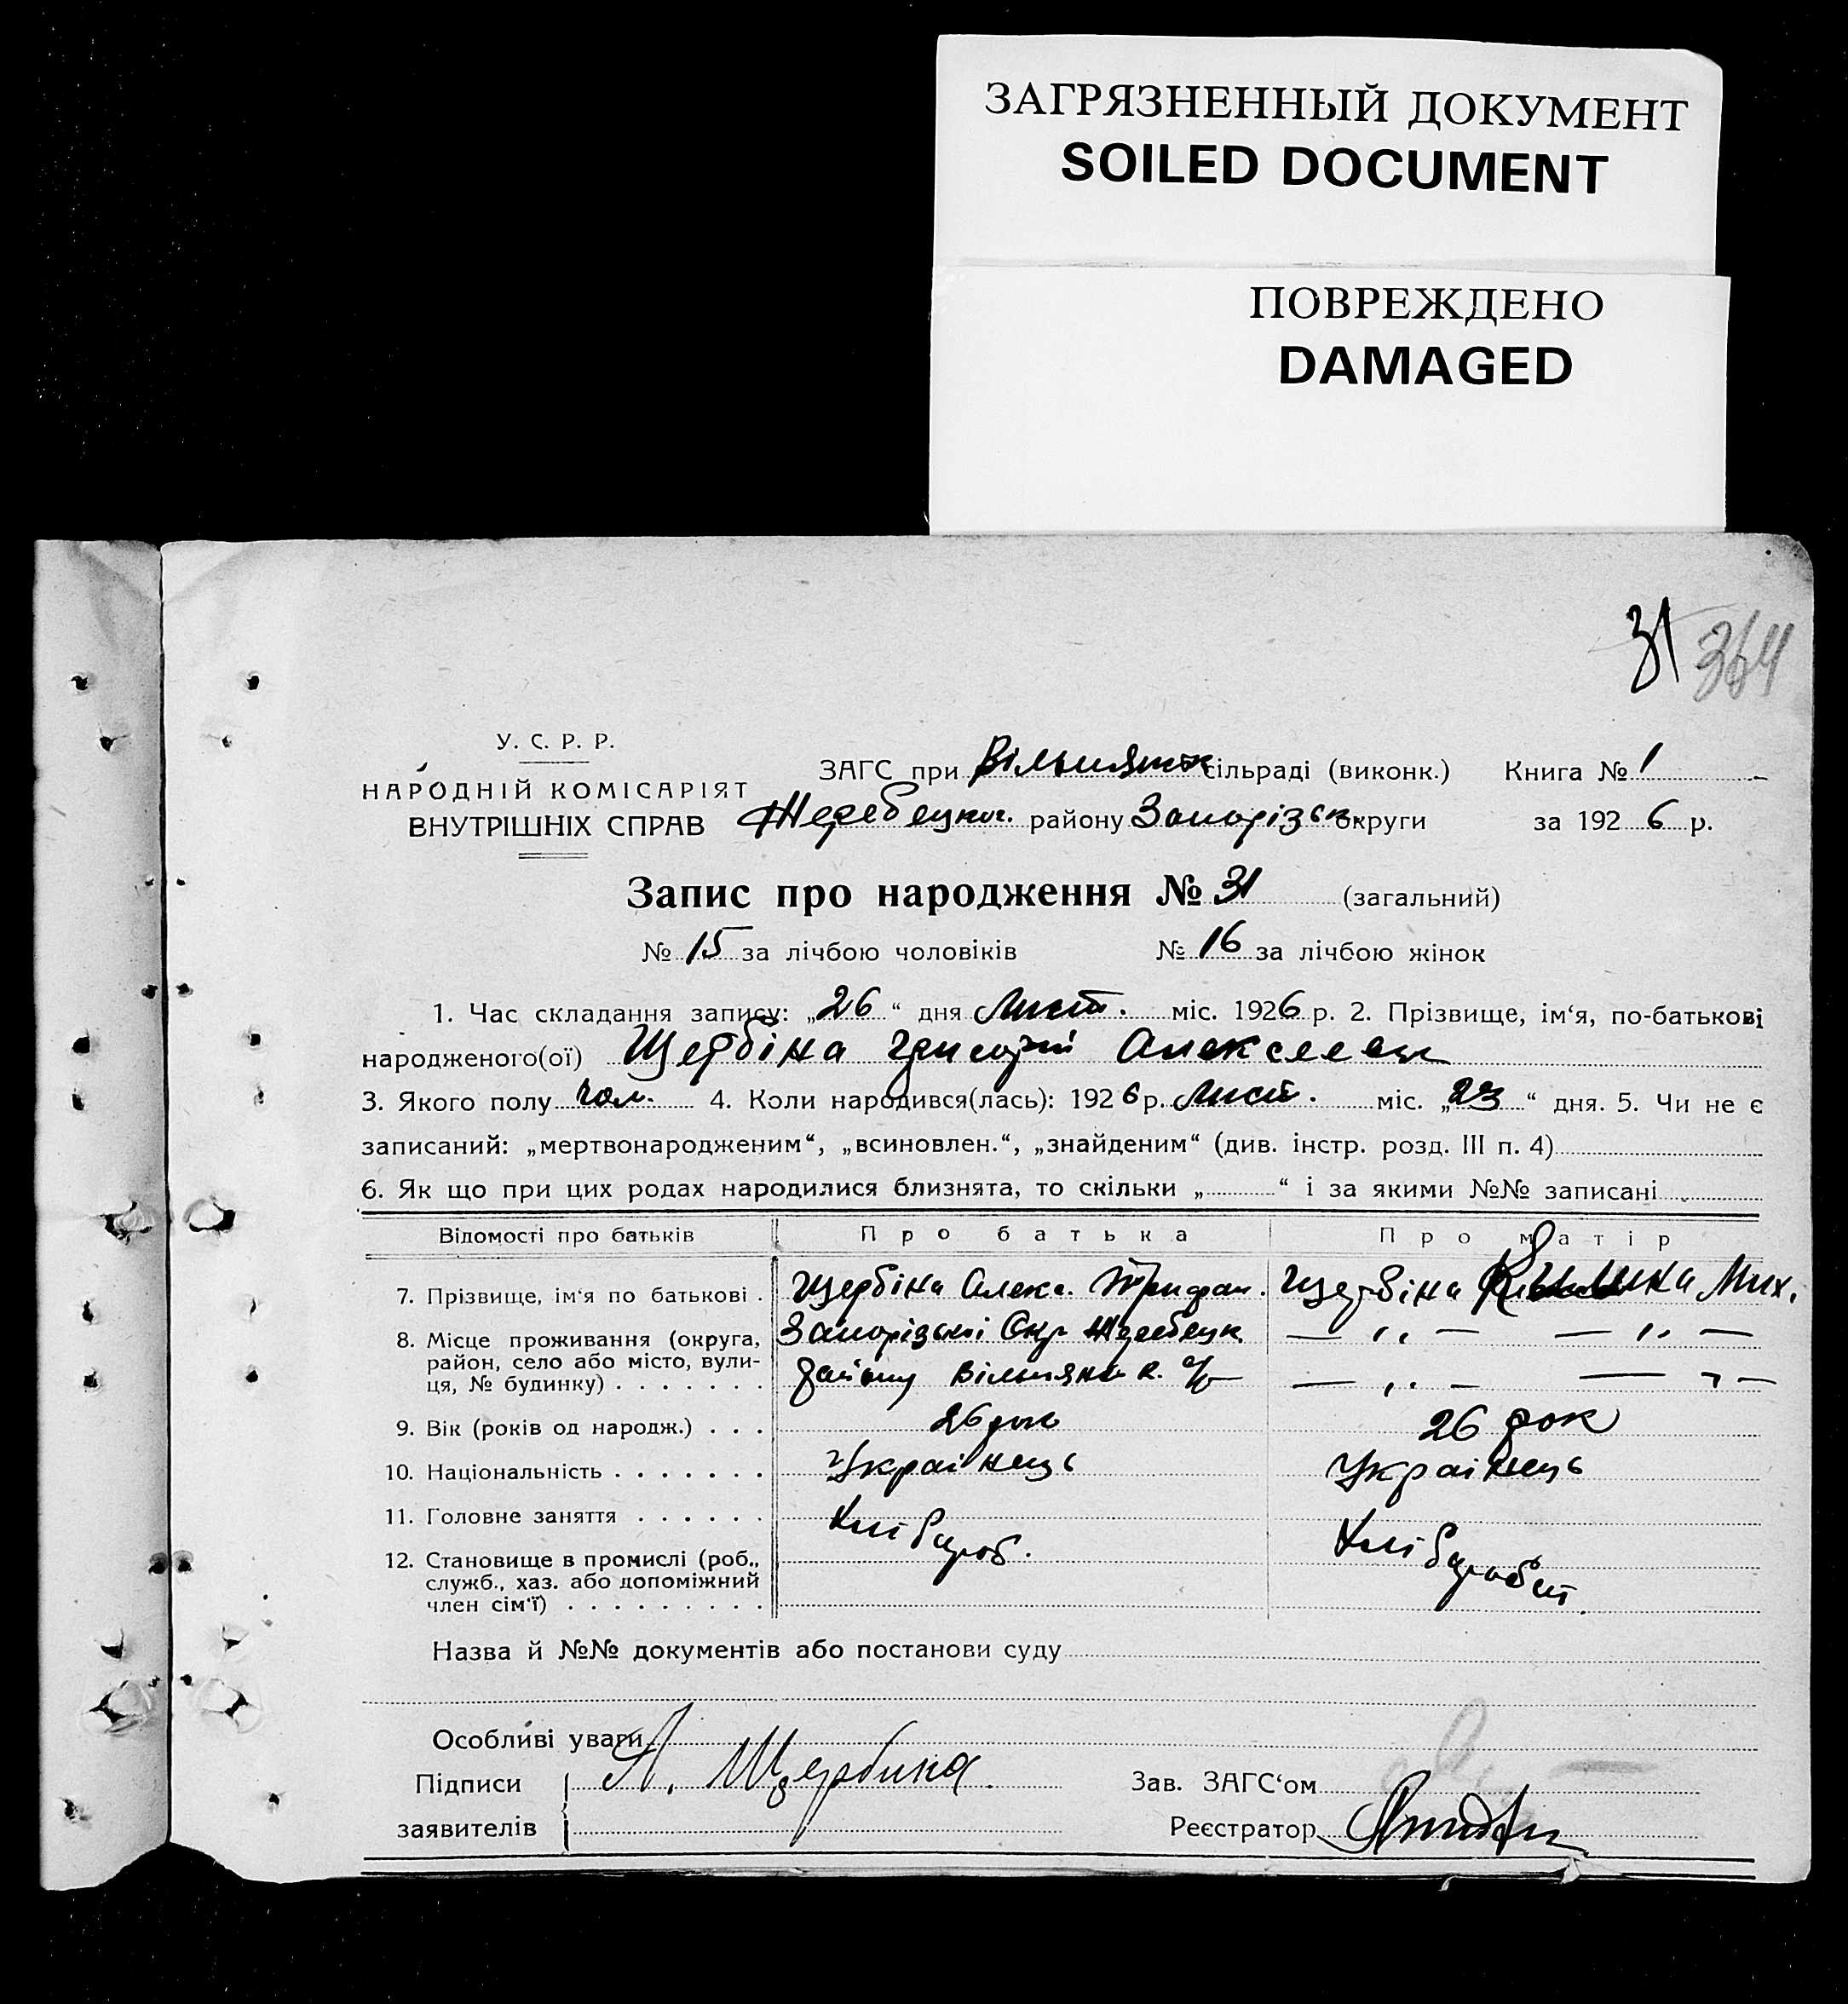 ЗАГРЯЗНЕННЫЙ ДОКУМЕНТ
SOILED DOCUMENT
ПОВРЕЖДЕНО
DAMAGED
31 364
У. С. Р. Р.
НАРОДНІЙ КОМІСАРІЯТ
ВНУТРІШНІХ СПРАВ
ЗАГС при Вільнянськ сільраді (виконк.) Книга № 1
Жеребецьк. району Запорізьк. округи за 1926 р.
Запис про народження № 31 (загальний)
№ 15 за лічбою чоловіків № 16 за лічбою жінок
1. Час складання запису: „26“ дня Лист. міс. 1926 р. 2. Прізвище, ім‘я, по-батькові
народженого(ої) Щербіна Григорій Алексеевич
3. Якого полу чол. 4. Коли народився(лась): 1926 р. Лист. міс. „23“ дня. 5. Чи не є
записаний: „мертвонародженим“, „всиновлен.“, „знайденим“ (див. інстр. розд. III п. 4)
6. Як що при цих родах народилися близнята, то скільки „ “ і за якими №№ записані
Відомості про батьків Про батька Про матір
7. Прізвище, ім‘я по батькові . Щербіна Алекс. Трифан. Щербіна Мих.
8. Місце проживання (округа, Запорізької Окр Жеребецьк — ,, — — ,, —
район, село або місто, вули- району Вільнянк с/р — ,, — — ,, —
ця, № будинку) . . . . . . .
9. Вік (років од народж.) . . . 26 рок 26 рок
10. Національність . . . . . . . Українець Українець
11. Головне заняття . . . . . . Хлібороб. Хліборобст.
12. Становище в промислі (роб.,
служб., хаз. або допоміжний
член сім‘ї) . . . . . . . . .
Назва й №№ документів або постанови суду
Особливі уваги
Підписи А. Щербина Зав. ЗАГС‘ом
заявителів Реєстратор